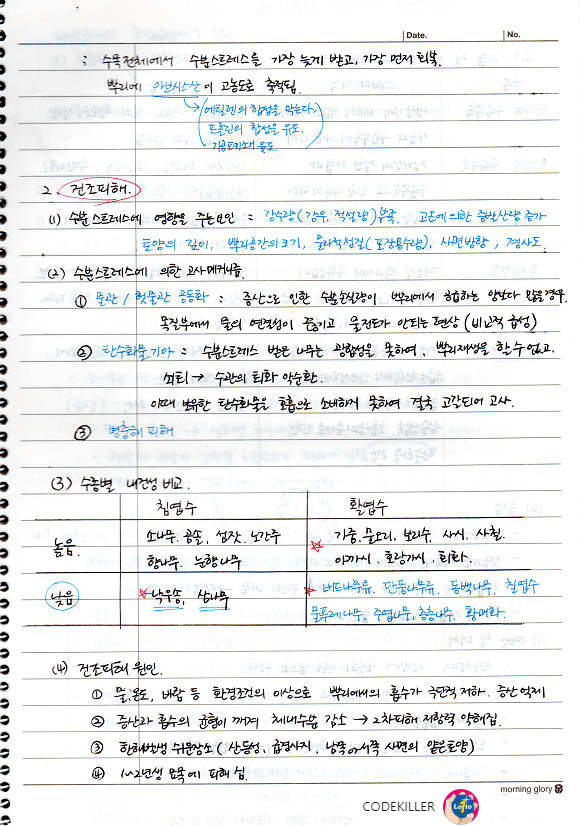 Date. No.
; 수목전체에서 수분스트레스를 가장 늦게 받고, 가장 먼저 회복.
뿌리에 아브시스산이 고농도로 축적됨.
에틸렌의 합성을 막는다.
프롤린의 합성을 유도.
기공폐쇄 유도
2. 건조피해.
(1) 수분스트레스에 영향을 주는요인 : 강수량(강우, 적설량)부족, 고온에 의한 증발산량 증가
토양의 깊이, 뿌리공간의 크기, 물리적성질(포장용수량), 사면방향, 경사도.
(2) 수분스트레스에 의한 고사메커니즘.
① 물관/헛물관 공동화 : 증산으로 인한 수분손실량이 뿌리에서 흡수하는 양보다 많을경우,
목질부에서 물의 연결성이 끊기고 물전도가 안되는 현상 (비교적 급성)
② 탄수화물기아 : 수분스트레스 받은 나무는 광합성을 못하여, 뿌리재생을 할 수 없고.
쇠퇴 → 수관의 퇴화 악순환.
이때 보유한 탄수화물을 호흡으로 소비하게 못하여 결국 고갈되어 고사.
③ 병충해 피해
(3) 수종별 내건성 비교.
침엽수 활엽수
높음. 소나무. 곰솔. 섬잣. 노간주 ☆ 가중. 물오리. 보리수. 사시. 사철.
향나무. 눈향나무 아까시. 호랑가시. 회화.
낮음 ☆ 낙우송, 삼나무 ☆ 버드나무류, 단풍나무류, 동백나무, 칠엽수
물푸레나무, 주엽나무, 층층나무, 황매화.
(4) 건조피해 원인.
① 물, 온도, 바람 등 환경조건의 이상으로 뿌리에서의 흡수가 극단적 저하. 증산억제
② 증산과 흡수의 균형이 깨져 체내수분 감소 → 2차피해 저항력 약해짐.
③ 한해발생 쉬운장소 ( 산등성, 급경사지, 남쪽or서쪽 사면의 얕은토양)
④ 1~2년생 묘목에 피해 심.
morning glory
CODEKILLER